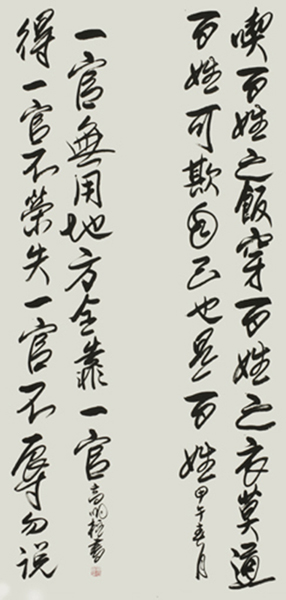 喫百姓之飯穿百姓之衣莫道
百姓可欺自己也是百姓 甲午春月
得一官不榮失一官不辱勿说
一官無用地方全靠一官 高明書